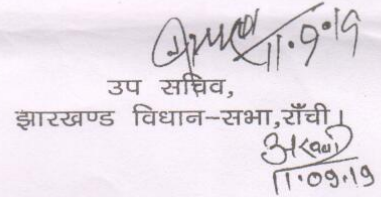 11.9.19
उप सचिव,
झारखण्ड विधान-सभा,राँची।
11.09.19